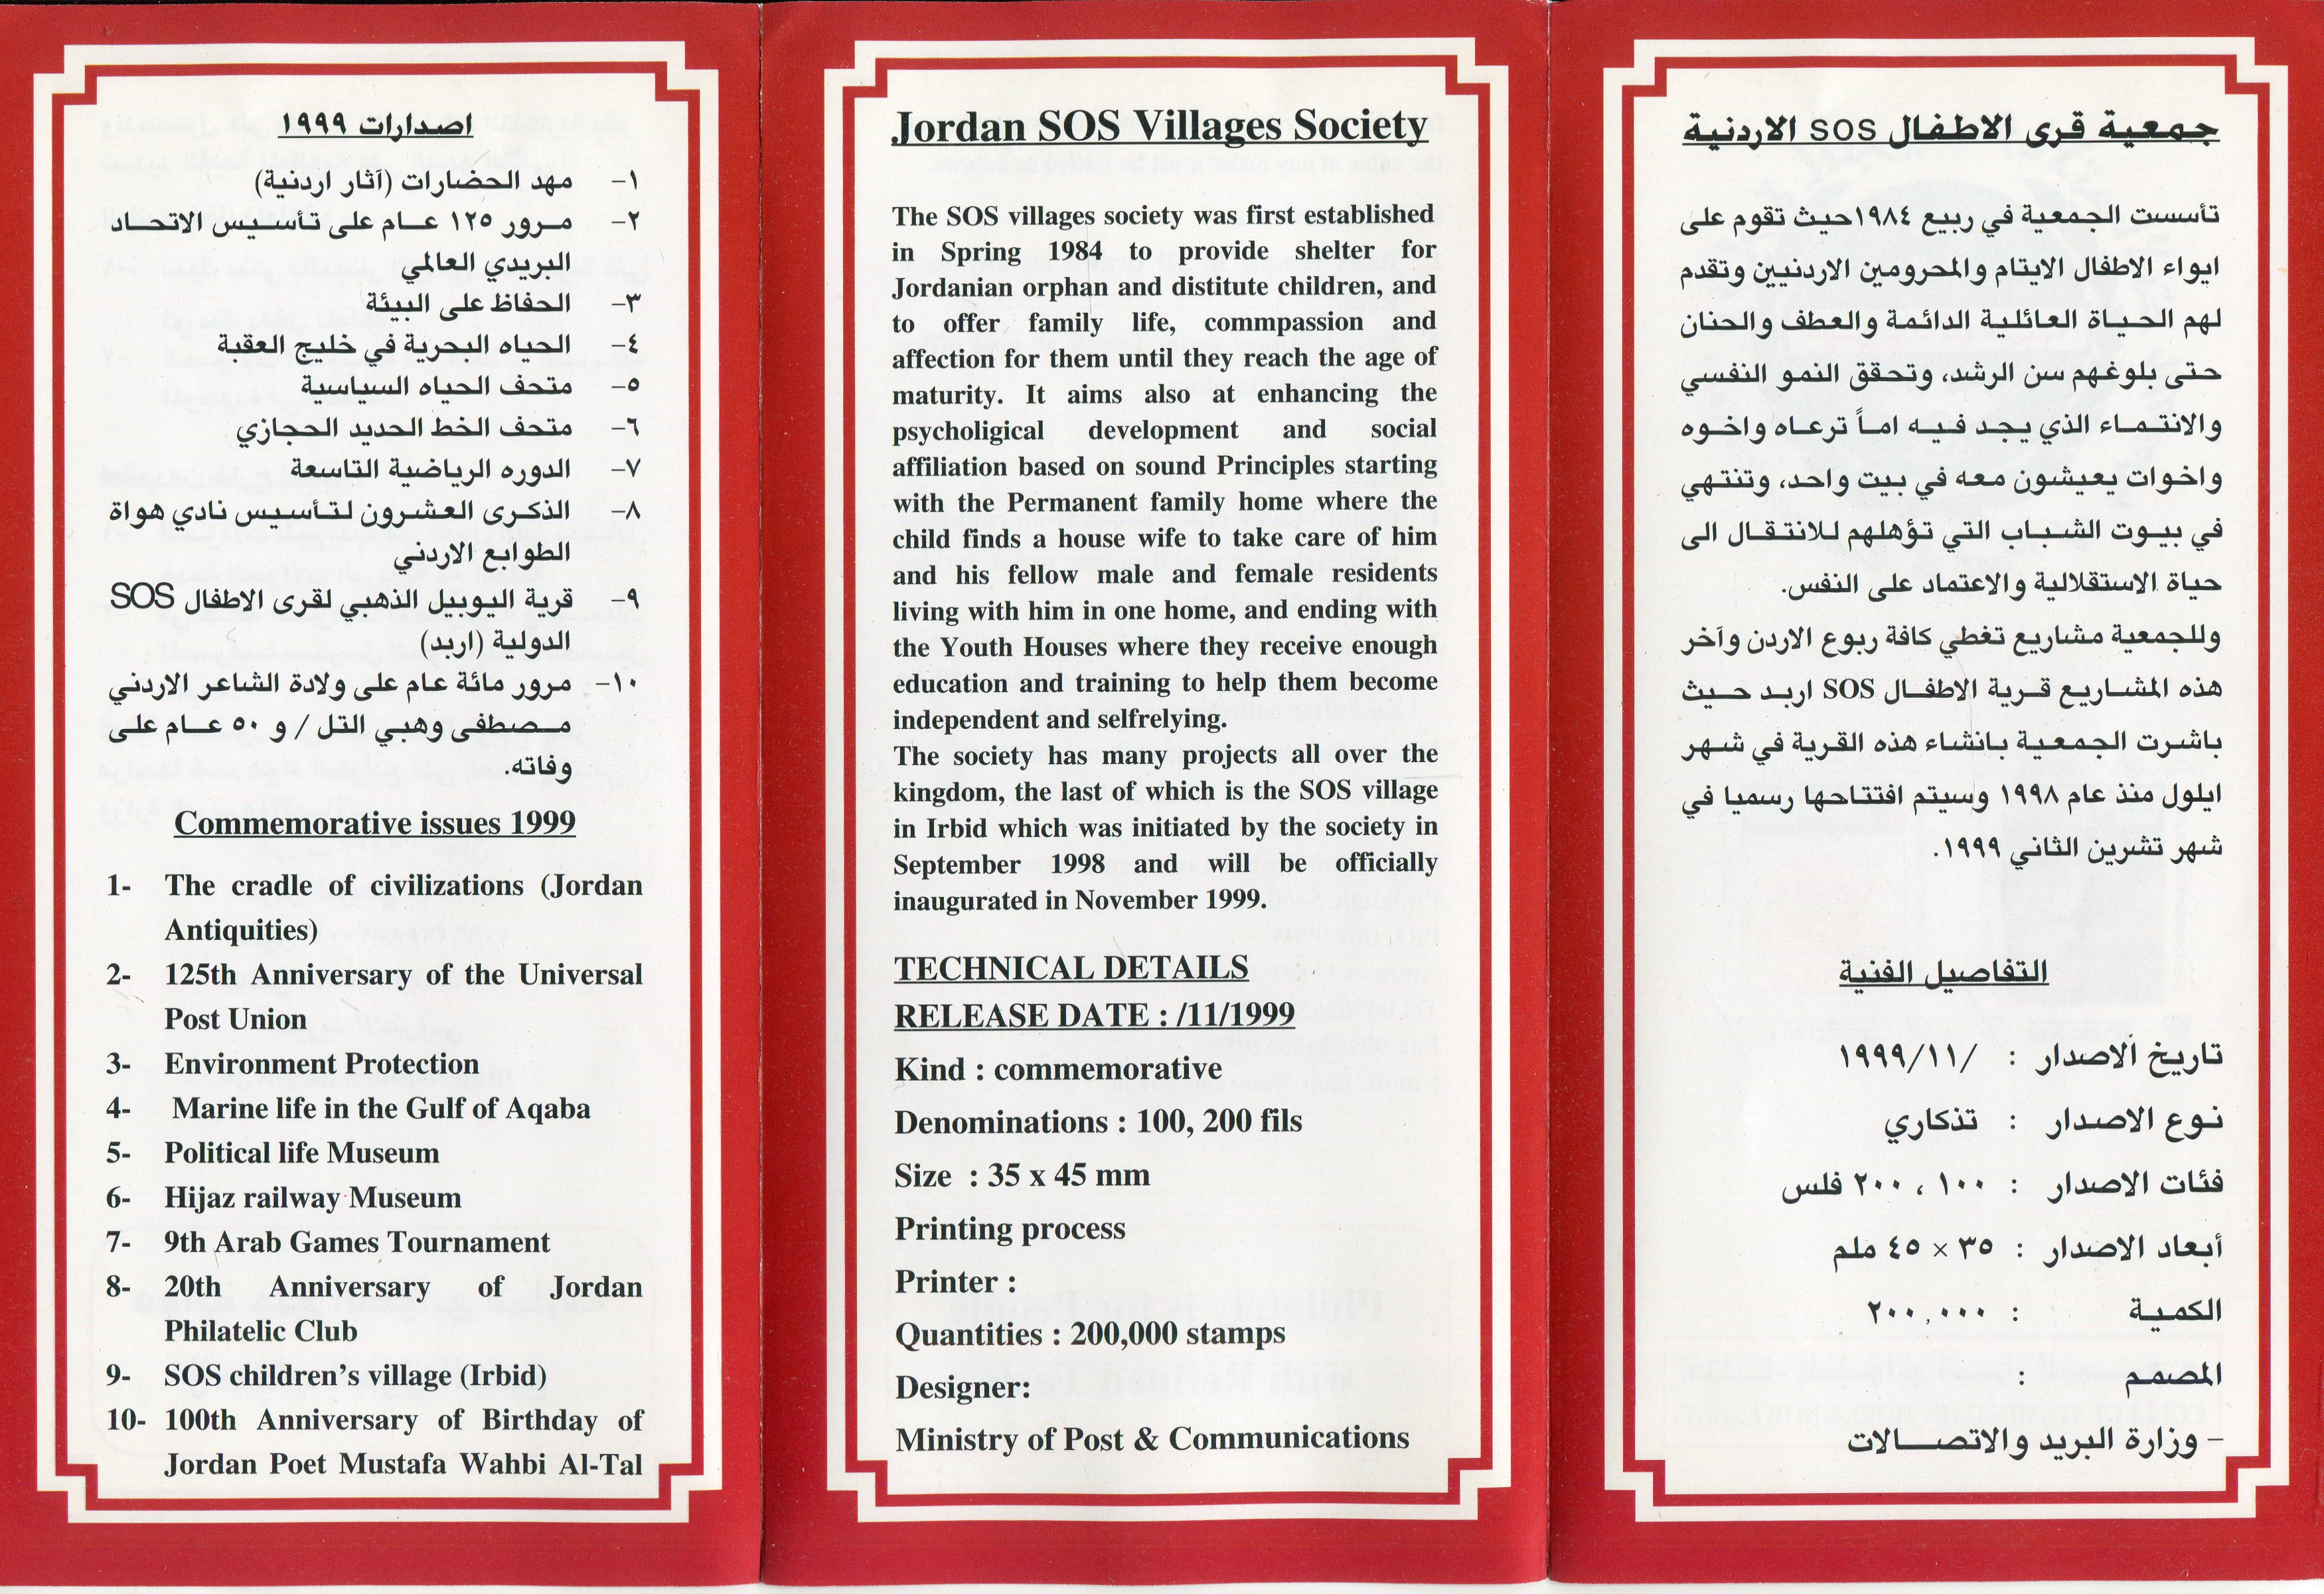 اصدارات ١٩٩٩
١- مهد الحضارات (آثار اردنية)
٢- مرور ١٢٥ عام على تأسيس الاتحاد
البريدي العالمي
٣- الحفاظ على البيئة
٤- الحياه البحرية في خليج العقبة
٥- متحف الحياه السياسية
٦- متحف الخط الحديد الحجازي
٧- الدوره الرياضية التاسعة
٨- الذكرى العشرون لتأسيس نادي هواة
الطوابع الاردني
٩- قرية اليوبيل الذهبي لقرى الاطفال SOS
الدولية (اربد)
١٠- مرور مائة عام على ولادة الشاعر الاردني
مصطفى وهبي التل / و ٥٠ عام على
وفاته.
Commemorative issues 1999
1- The cradle of civilizations (Jordan
Antiquities)
2- 125th Anniversary of the Universal
Post Union
3- Environment Protection
4- Marine life in the Gulf of Aqaba
5- Political life Museum
6- Hijaz railway Museum
7- 9th Arab Games Tournament
8- 20th Anniversary of Jordan
Philatelic Club
9- SOS children's village (Irbid)
10- 100th Anniversary of Birthday of
Jordan Poet Mustafa Wahbi Al-Tal
Jordan SOS Villages Society
The SOS villages society was first established
in Spring 1984 to provide shelter for
Jordanian orphan and distitute children, and
to offer family life, commpassion and
affection for them until they reach the age of
maturity. It aims also at enhancing the
psycholigical development and social
affiliation based on sound Principles starting
with the Permanent family home where the
child finds a house wife to take care of him
and his fellow male and female residents
living with him in one home, and ending with
the Youth Houses where they receive enough
education and training to help them become
independent and selfrelying.
The society has many projects all over the
kingdom, the last of which is the SOS village
in Irbid which was initiated by the society in
September 1998 and will be officially
inaugurated in November 1999.
TECHNICAL DETAILS
RELEASE DATE : /11/1999
Kind : commemorative
Denominations : 100, 200 fils
Size : 35 x 45 mm
Printing process
Printer :
Quantities : 200,000 stamps
Designer:
Ministry of Post & Communications
جمعية قرى الاطفال SOS الاردنية
تأسست الجمعية في ربيع ١٩٨٤حيث تقوم على
ايواء الاطفال الايتام والمحرومين الاردنيين وتقدم
لهم الحياة العائلية الدائمة والعطف والحنان
حتى بلوغهم سن الرشد، وتحقق النمو النفسي
والانتماء الذي يجد فيه اماً ترعاه واخوه
واخوات يعيشون معه في بيت واحد، وتنتهي
في بيوت الشباب التي تؤهلهم للانتقال الى
حياة الاستقلالية والاعتماد على النفس.
وللجمعية مشاريع تغطي كافة ربوع الاردن وآخر
هذه المشاريع قرية الاطفال SOS اربد حيث
باشرت الجمعية بانشاء هذه القرية في شهر
ايلول منذ عام ١٩٩٨ وسيتم افتتاحها رسميا في
شهر تشرين الثاني ١٩٩٩.
التفاصيل الفنية
تاريخ الاصدار : /١٩٩٩/١١
نوع الاصدار : تذكاري
فئات الاصدار : ١٠٠ ، ٢٠٠ فلس
أبعاد الاصدار : ٣٥ × ٤٥ ملم
الكمية : ٢٠٠,٠٠٠
المصمم :
– وزارة البريد والاتصالات